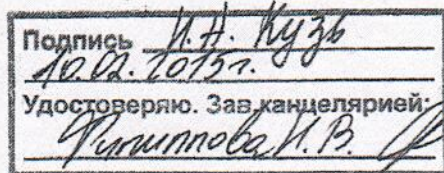 Подпись И.Н. Кузь
10.02.2015г.
Удостоверяю. Зав.канцелярией:
Филиппова И.В.